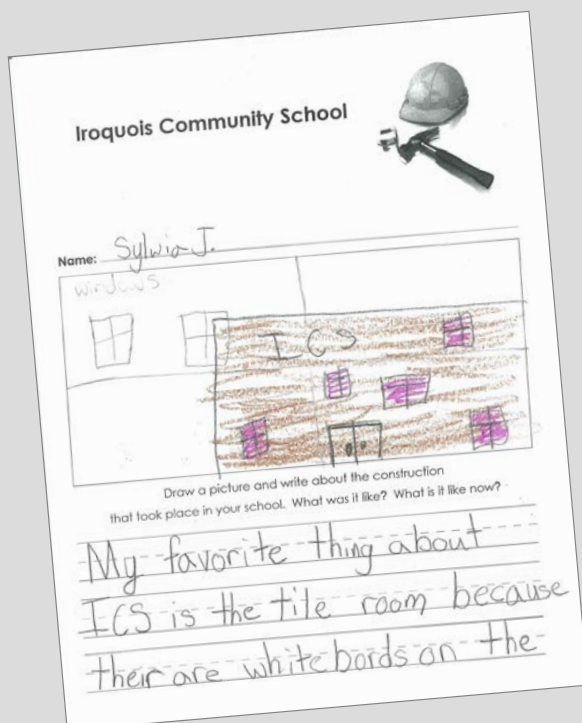 Iroquois Community School
Name: Sylwia J.
windows
ICS
Draw a picture and write about the construction
that took place in your school. What was it like? What is it like now?
My favorite thing about
ICS is the tile room because
their are whitebords on the